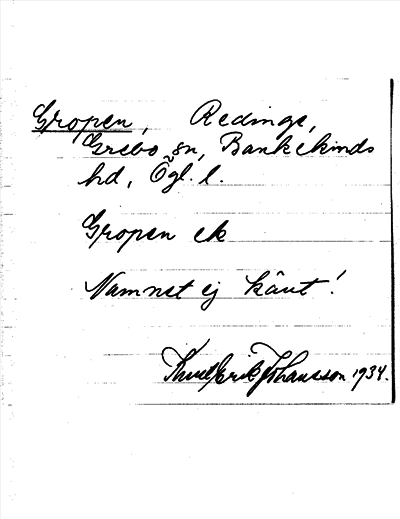 Gropen, Redinge,
Grebo sn, Bankekinds
hd, Ögl. l.
Gropen ek
Namnet ej känt!
Knut Erik Johansson 1934.